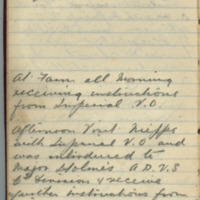 At Farm all Morning
receiving instructions
from Imperial V.O.
Afternoon Visit Nieppe
with Imperial V.O and
was introduced to
Major Holmes A.D.V.S
6th Division & receive
further instructions from